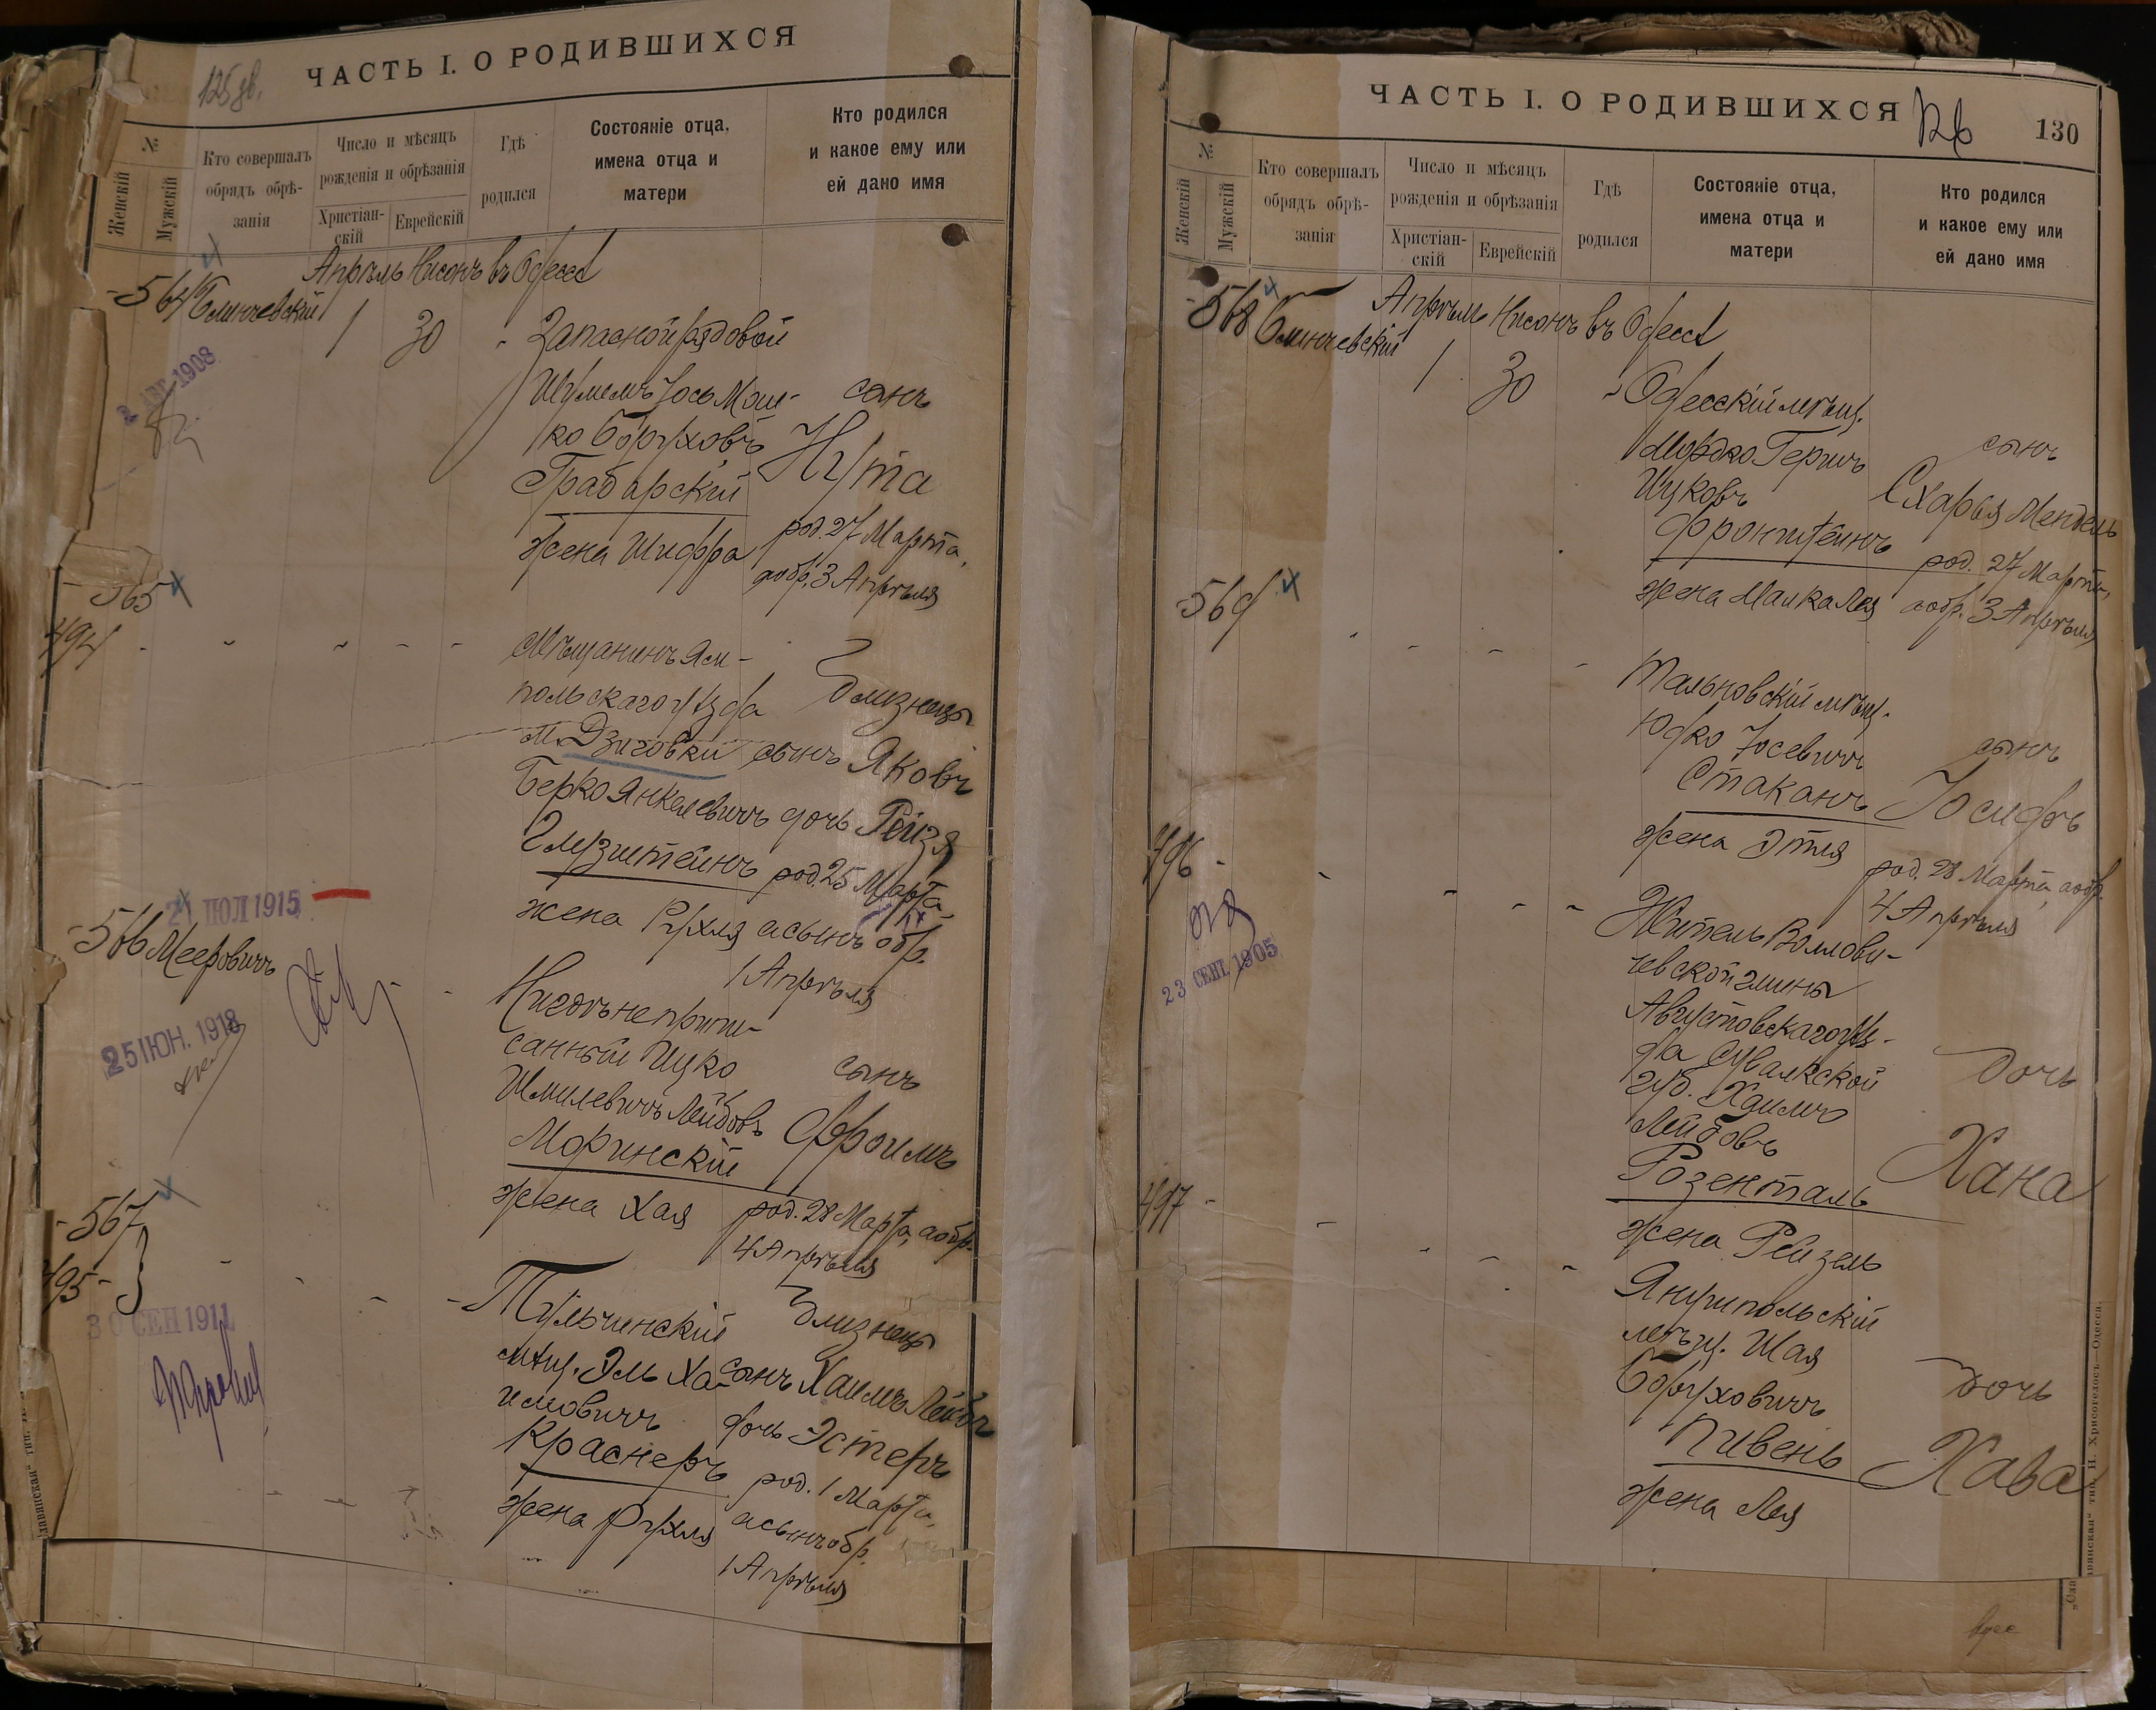 125 зв.
ЧАСТЬ I. О РОДИВШИХСЯ
№
Женскій
Мужскій
Кто совершалъ
обрядъ обрѣ-
занія
Число и мѣсяцъ
рожденія и обрѣзанія
Христіан-
скій
Еврейскій
Гдѣ
родился
Состояніе отца,
имена отца и
матери
Кто родился
и какое ему или
ей дано имя
Апрѣль Нисонъ въ Одессѣ
564 Блинчевскій 1 30 Запасной рядовой
2 АВГ. 1908
Шулемъ Іось Мош-
ко Боруховъ
Грабарскій
жена Шифра
сынъ
Нута
род. 27 Марта,
а обр. 3 Апрѣля
565
494
Мѣщанинъ Ям-
польскаго уѣзда
м. Дзиговки
Берко Янкелевичъ
Глузштейнъ
жена Рухля
близнецы
сынъ Яковъ
дочь Рейзя
род. 25 Марта,
а сынъ обр.
1 Апрѣля
21 ІЮЛ 1915
566 Мееровичъ
25 ІЮН. 1918
Нигдѣ не припи-
санный Ицко
Шмилевичъ Лейбовъ
Моринскій
жена Хая
сынъ
Фроимъ
род. 28 Марта, а обр.
4 Апрѣля
567
495
30 СЕН 1911
Тульчинскій
мѣщ. Эль Ха-
имовичъ
Краснеръ
жена Рухля
близнецы
сынъ Хаимъ Лейбъ
дочь Эстеръ
род. 1 Марта,
а сынъ обр.
1 Апрѣля
ЧАСТЬ I. О РОДИВШИХСЯ
126
130
№
Женскій
Мужскій
Кто совершалъ
обрядъ обрѣ-
занія
Число и мѣсяцъ
рожденія и обрѣзанія
Христіан-
скій
Еврейскій
Гдѣ
родился
Состояніе отца,
имена отца и
матери
Кто родился
и какое ему или
ей дано имя
Апрѣль Нисонъ въ Одессѣ
568 Блинчевскій 1 30
Одесскій мѣщ.
Мордко Гершъ
Ицковъ
Фронштейнъ
жена Малка Лея
сынъ
Схарья Мендель
род. 27 Марта,
а обр. 3 Апрѣля
569
Тальновскій мѣщ.
Юдко Іосевичъ
Стаканъ
жена Этля
сынъ
Іосифъ
род. 28 Марта, а обр.
4 Апрѣля
496
23 СЕН. 1905
Житель Воллови-
чевской гмины
Августовскаго уѣз-
да Сувалкской
губ. Хаимъ
Лейбовъ
Розенталь
жена Рейзель
дочь
Хана
497
Янушпольскій
мѣщ. Шая
Боруховичъ
Пивень
жена Лея
дочь
Хава